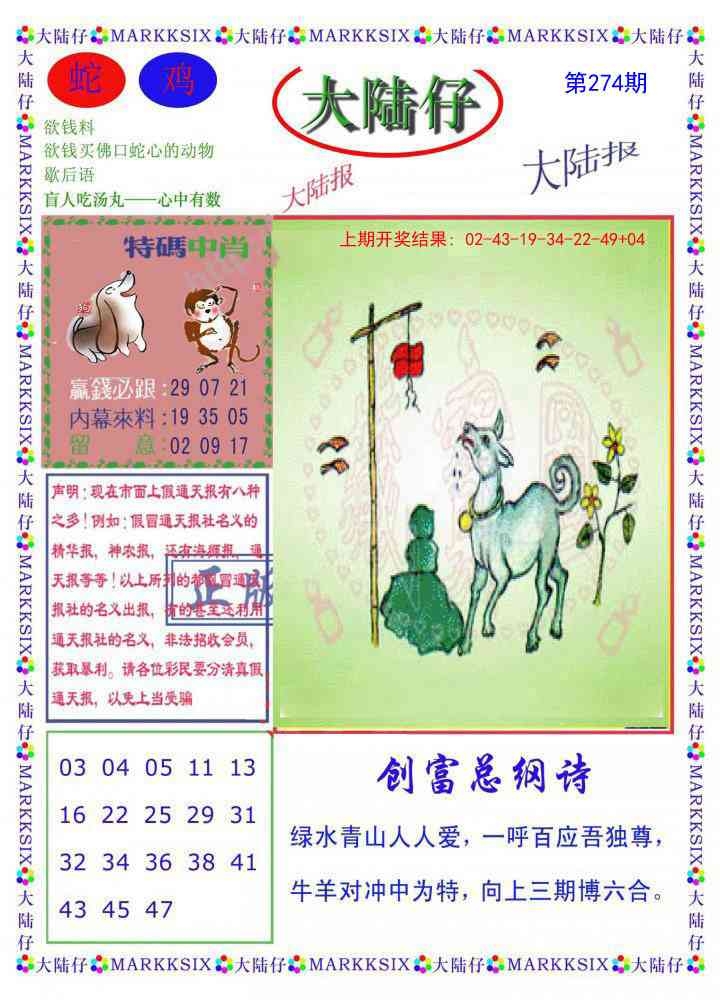 大陆仔 MARKKSIX 大陆仔 MARKKSIX 大陆仔 MARKKSIX 大陆仔
蛇 鸡
大陆仔
第274期
欲钱料
欲钱买佛口蛇心的动物
歇后语
盲人吃汤丸——心中有数
大陆报
大陆报
特碼中肖
狗
赢錢必跟:29 07 21
内幕來料:19 35 05
留 意:02 09 17
上期开奖结果: 02-43-19-34-22-49+04
声明:现在市面上假通天报有八种
之多!例如:假冒通天报社名义的
精华报,神农报,还有海狮报,通
天报等等!以上所列的都假冒通天
报社的名义出报,有的甚至还利用
通天报社的名义,非法招收会员,
获取暴利。请各位彩民要分清真假
通天报,以免上当受骗
正版
03 04 05 11 13
16 22 25 29 31
32 34 36 38 41
43 45 47
创富总纲诗
绿水青山人人爱,一呼百应吾独尊,
牛羊对冲中为特,向上三期博六合。
大陆仔 MARKKSIX 大陆仔 MARKKSIX 大陆仔 MARKKSIX 大陆仔
大陆仔 MARKKSIX 大陆仔 MARKKSIX 大陆仔 MARKKSIX 大陆仔 MARKKSIX 大陆仔
大陆仔 MARKKSIX 大陆仔 MARKKSIX 大陆仔 MARKKSIX 大陆仔 MARKKSIX 大陆仔